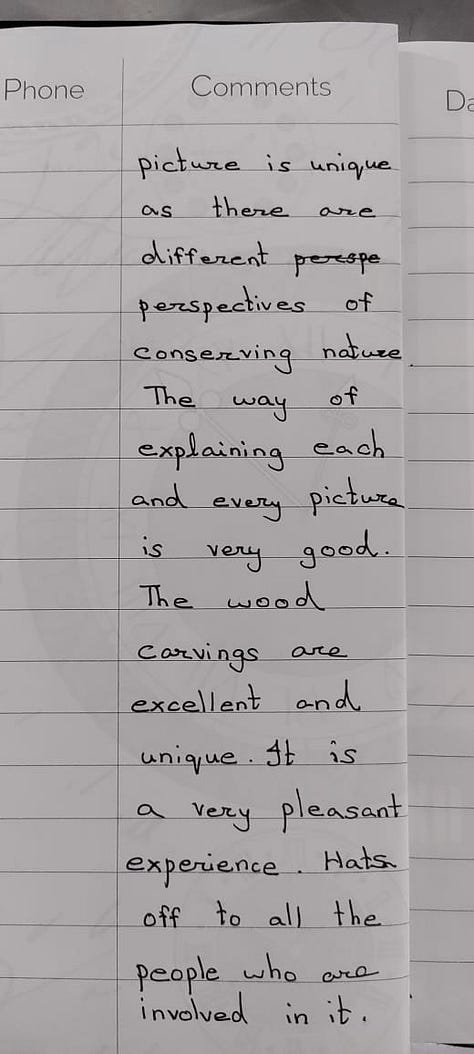 Phone Comments Da
picture is unique
as there are
different perspe
perspectives of
conserving nature.
The way of
explaining each
and every picture
is very good.
The wood
carvings are
excellent and
unique. It is
a very pleasant
experience. Hats
off to all the
people who are
involved in it.